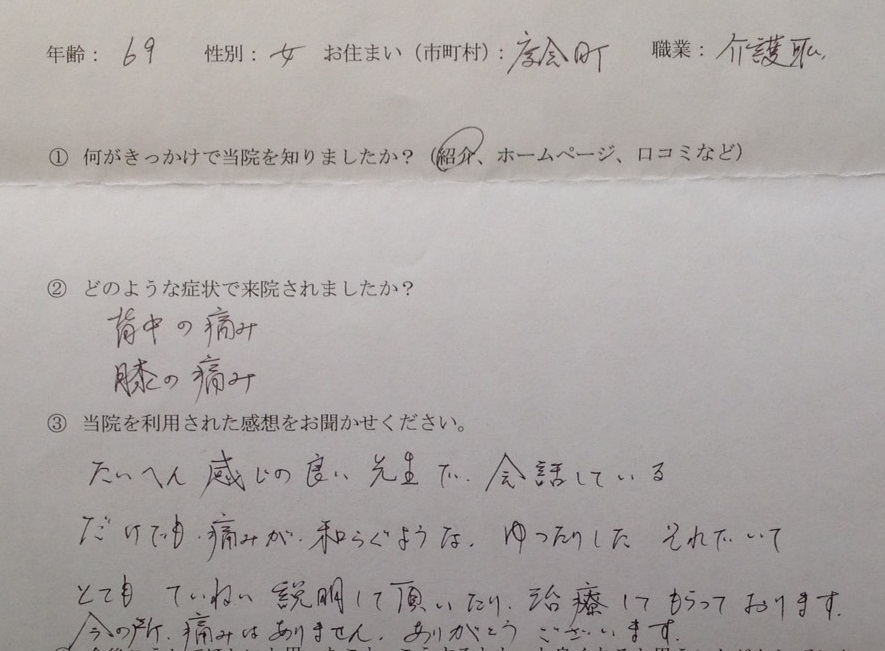 年齢： 69 性別： 女 お住まい（市町村）： 度会町 職業： 介護職
① 何がきっかけで当院を知りましたか？（紹介、ホームページ、口コミなど）
② どのような症状で来院されましたか？
背中の痛み
膝の痛み
③ 当院を利用された感想をお聞かせください。
たいへん 感じの良い 先生で、会話している
だけでも、痛みが、和らぐような、ゆったりした それでいて
とても ていねい 説明して頂いたり、治療してもらっております。
今の所、痛みはありません。ありがとうございます。